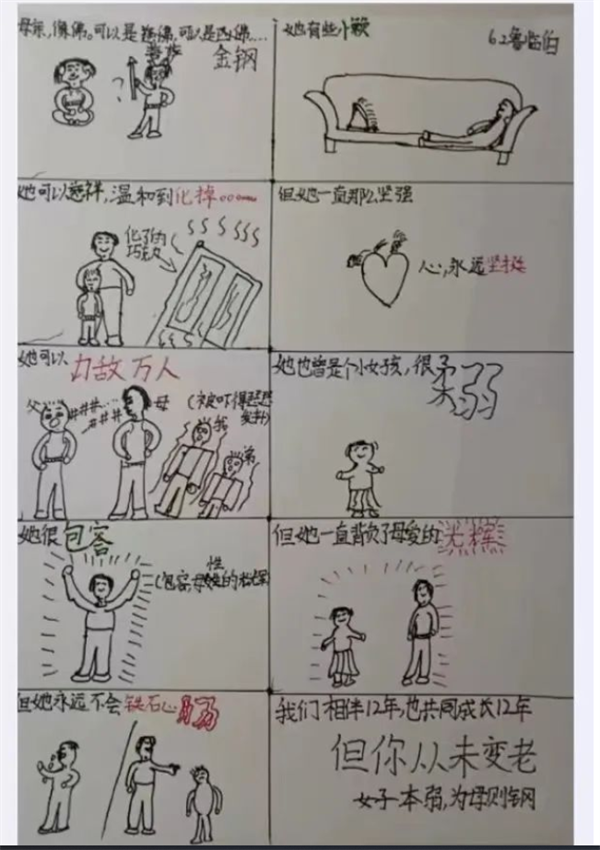 母亲,像佛。可以是慈佛,可以是凶佛…
金钢
?
她有些小懒
6.2鲁临伯
她可以慈祥,温和到化掉。。。
化了的
巧克力
但她一直那么坚强
心,永远坚挺
她可以力敌万人
父
###…
###
母
(被吓得瑟瑟
发抖)
我
弟
她也曾是个小女孩,很柔弱
她很包容
性
但她一直背负了母爱的光辉
但她永远不会铁石心
我们相伴12年,也共同成长12年
但你从未变老
女子本弱,为母则钢